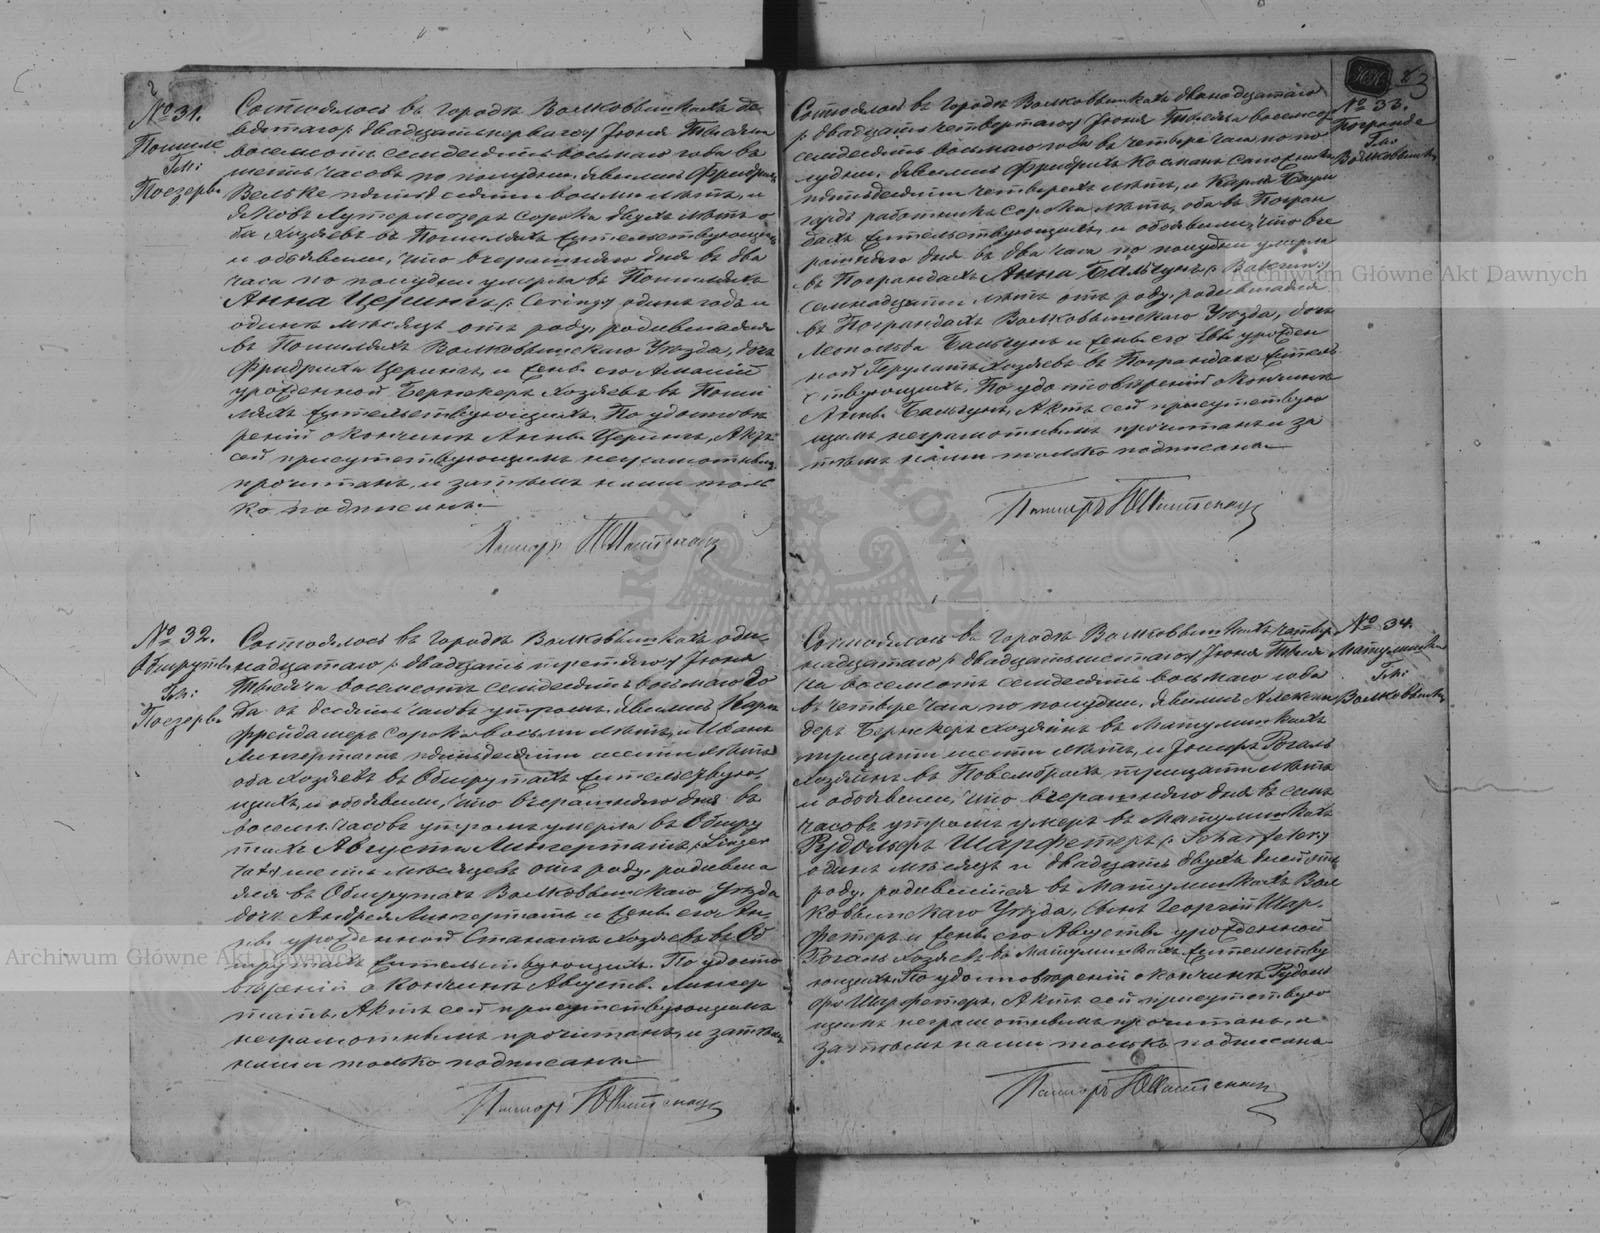 № 31.
Пошиле
Гм:
Поезеры
Состоялось въ городѣ Волковышкахъ де-
вятаго /: двадцать перваго :/ Іюня Тысяча
восемьсотъ семдесятъ восьмаго года въ
пять часовъ по полудни. Явились Фридрихъ
Вельке пятидесяти восьми лѣтъ, и
Яковъ Лутермозеръ сорока двухъ лѣтъ о
ба хозяевъ въ Пошиляхъ жительствующіе,
и объявили, что вчерашняго дня въ два
часа по полудни умерла въ Пошиляхъ
Анна Церингъ /: Cering :/ одинъ годъ и
одинъ мѣсяцъ отъ роду, родившаяся
въ Пошиляхъ Волковышскаго Уѣзда, дочь
Фридриха Церингъ, и жены его Амаліи
урожденной Бернекеръ хозяевъ въ Поши
ляхъ жительствующихъ. По удостовѣ
реніи о кончинѣ Анны Церингъ, Актъ
сей присутствующимъ неграмотнымъ
прочитанъ, и затѣмъ нами толь
ко подписанъ.
Пасторъ
№ 32.
Обшруты
Гм:
Поезеры
Состоялось въ городѣ Волковышкахъ оди-
надцатаго /: двадцать третьяго :/ Іюня
Тысяча восемьсотъ семдесятъ восьмаго го
да въ десять часовъ утромъ. Явились Карлъ
Фрейдамеръ сорока восьми лѣтъ, и Иванъ
Лингертатъ пятьдесяти шести лѣтъ
оба хозяевъ въ Обшрутахъ жительствую-
щихъ, и объявили, что вчерашняго дня въ
восемь часовъ утромъ умерла въ Обшру
тахъ Августа Лингертатъ /: Linger
tat :/ шесть мѣсяцевъ отъ роду, родивша
яся въ Обшрутахъ Волковышскаго Уѣзда
дочь Андрея Лингертатъ и жены его Ан-
ны урожденной Станатъ хозяевъ въ Об
шрутахъ жительствующихъ. По удосто
вѣреніи о кончинѣ Августы Лингер
татъ, Актъ сей присутствующимъ
неграмотнымъ прочитанъ, и затѣмъ
нами только подписанъ
Пасторъ
83
№ 33.
Погранде
Гм:
Волковышки
Состоялось въ городѣ Волковышкахъ двенадцатаго
/: двадцать четвертаго :/ Іюня Тысяча восемьсотъ
семдесятъ восьмаго года въ четыре часа по по
лудни. Явились Фридрихъ Косманъ
пятьдесяти четырехъ лѣтъ, и Карлъ Баум
гардъ работникъ сорока лѣтъ, оба въ Погран
дахъ жительствующихъ, и объявили, что вче
рашняго дня въ два часа по полудни умерла
въ Пограндахъ Анна Бальчунъ /: Balczun :/
семнадцати лѣтъ отъ роду, родившаяся
въ Пограндахъ Волковышскаго Уѣзда, дочь
Леопольда Бальчунъ и жены его Евы урожден
ной Герулатъ хозяевъ въ Пограндахъ житель
ствующихъ. По удостовѣреніи о кончинѣ
Анны Бальчунъ, Актъ сей присутствую
щимъ неграмотнымъ прочитанъ и за
тѣмъ нами только подписанъ
Пасторъ
№ 34.
Матулишки
Гм:
Волковышки
Состоялось въ городѣ Волковышкахъ четыр
надцатаго /: двадцать шестаго :/ Іюня Тыся
ча восемьсотъ семдесятъ восьмаго года
въ четыре часа по полудни. Явились Алексан
деръ Бернекеръ хозяинъ въ Матулишкахъ
тридцати шести лѣтъ, и Іосифъ Рогаль
хозяинъ въ Повембрахъ тридцати лѣтъ
и объявили, что вчерашняго дня въ семь
часовъ утромъ умеръ въ Матулишкахъ
Рудольфъ Шарфетеръ /: Scharfeter :/
одинъ мѣсяцъ и двадцать двухъ дней отъ
роду, родившійся въ Матулишкахъ Вол
ковышскаго Уѣзда, сынъ Георгія Шар-
фетеръ и жены его Августы урожденной
Рогаль хозяевъ въ Матулишкахъ жительству
ющихъ. По удостовѣреніи о кончинѣ Рудоль
фа Шарфетеръ, Актъ сей присутствую
щимъ неграмотнымъ прочитанъ, и
затѣмъ нами только подписанъ
Пасторъ
Archiwum Główne Akt Dawnych
Archiwum Główne Akt Dawnych